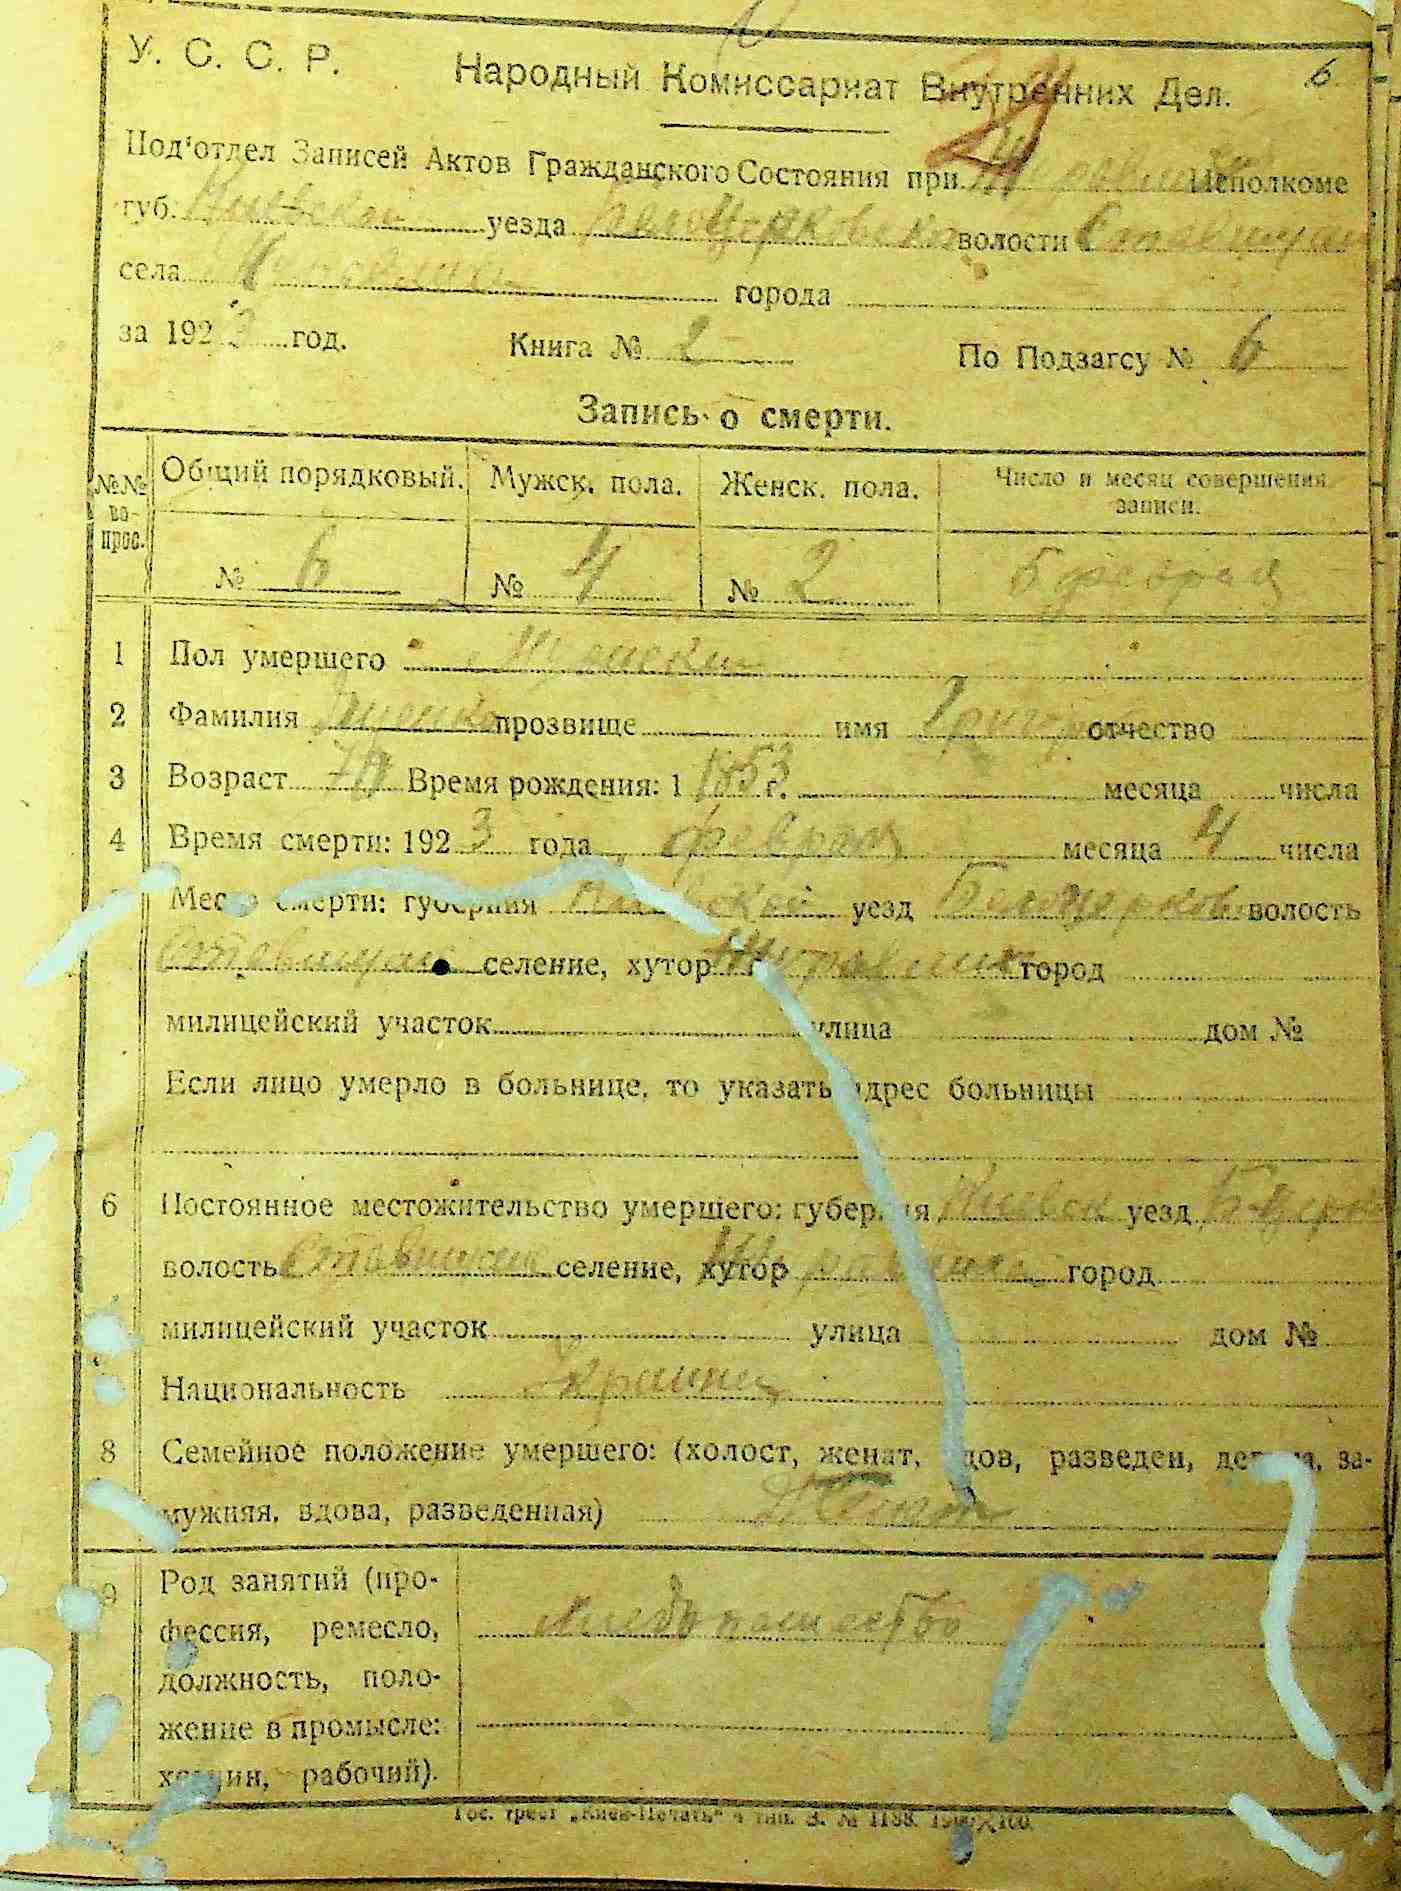 6.
У. С. С. Р. Народный Комиссариат Внутренних Дел.
Под'отдел Записей Актов Гражданского Состояния при Исполкоме
губ. Киевской уезда Белоцерковско волости Ставищан
села города
за 1923 год. Книга № 2 По Подзагсу № 6
Запись о смерти.
№№ во-прос. Общий порядковый. Мужск. пола. Женск. пола. Число и месяц совершения записи.
№ 6 № 4 № 2 5 февраля
1 Пол умершего Мужски
2 Фамилия прозвище имя Григори отчество
3 Возраст 70 Время рождения: 1 1853 г. месяца числа
4 Время смерти: 1923 года февраля месяца 4 числа
Место смерти: губерния Киевской уезд Белоцерков волость
Ставищан селение, хутор город
милицейский участок улица дом №
Если лицо умерло в больнице, то указать адрес больницы
6 Постоянное местожительство умершего: губерния Киевск уезд Б-Церк
волость Ставищан селение, хутор город
милицейский участок улица дом №
Национальность Украинец
8 Семейное положение умершего: (холост, женат, вдов, разведен, девица, за-
мужняя, вдова, разведенная) женат
9 Род занятий (про-
фессия, ремесло, хлебопашество
должность, поло-
жение в промысле:
хозяин, рабочий).
Гос. трест „Киев-Печать“ 4 тип. З. № 1138. 1900✕100.